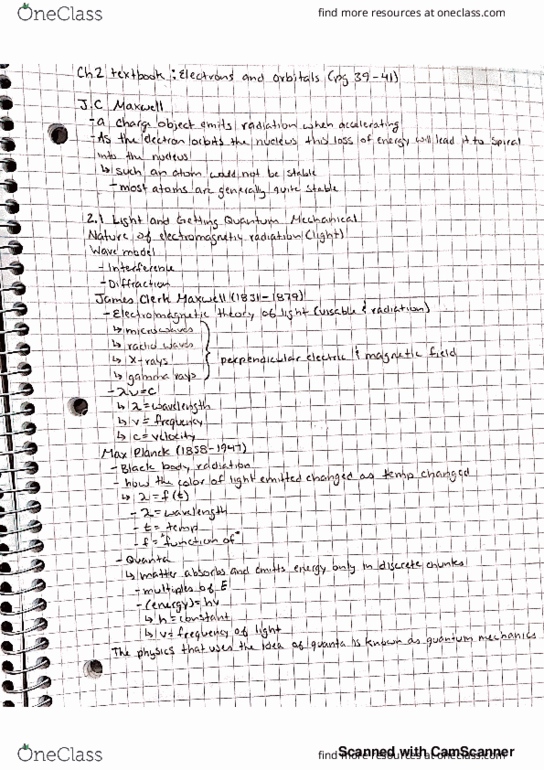 OneClass
find more resources at oneclass.com
Ch2 textbook : Electrons and orbitals (pg 39-41)
J.C Maxwell
- a charge object emits radiation when accelerating
- As the electron orbits the nucleus this loss of energy will lead it to spiral
into the nucleus
↳ such an atom would not be stable
- most atoms are generally quite stable
2.1 Light and Getting Quantum Mechanical
Nature of electromagnetic radiation (light)
Wave model
- Interference
- Diffraction
James Clerk Maxwell (1831-1879)
- Electromagnetic theory of light (visable & radiation)
↳ microwaves
↳ radio waves
↳ x-rays } perpendicular electric & magnetic field
↳ gamma rays
- λν=c
↳ λ=wavelength
↳ v= frequency
↳ c= velocity
Max Planck (1858-1947)
- Black body radiation
- how the color of light emitted changed as temp changed
↳ λ=f(t)
- λ= wavelength
- t= temp
- f= "function of"
- Quanta
↳ matter absorbs and emits energy only in discrete chunks
- multiples of E
- (energy)= hv
↳ h= constant
↳ v= frequency of light
The physics that uses the idea of quanta is known as quantum mechanics
OneClass
find more resources at oneclass.com
Scanned with CamScanner